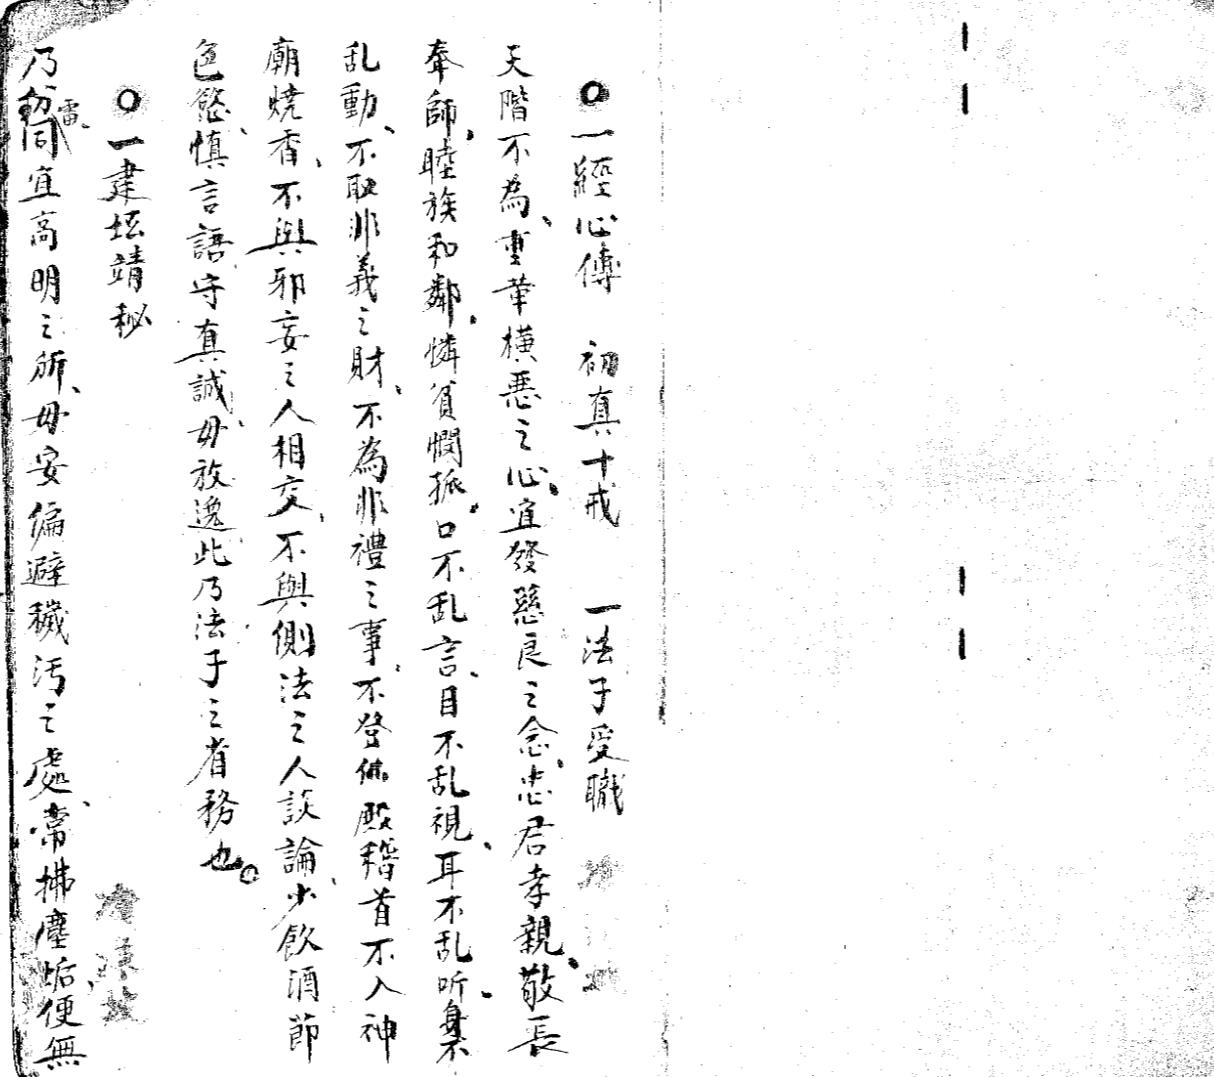 〇一經心傳 初真十戒 一法子受職
天階不為、專革橫惡之心、宜發慈良之念、忠君孝親、敬長
奉師、睦族和鄰、憐貧憫孤、口不乱言、目不乱視、耳不乱听、身不
乱動、不取非義之財、不為非禮之事、不登佛殿稽首不入神
廟燒香、不與邪妄之人相交、不與側法之人談論、少飲酒節
色慾、慎言語、守真誠、毋放逸此乃法子之省務也。
〇一建坛靖秘
乃雷同宜高明之所、毋安偏避穢汚之處、常拂塵垢、便無